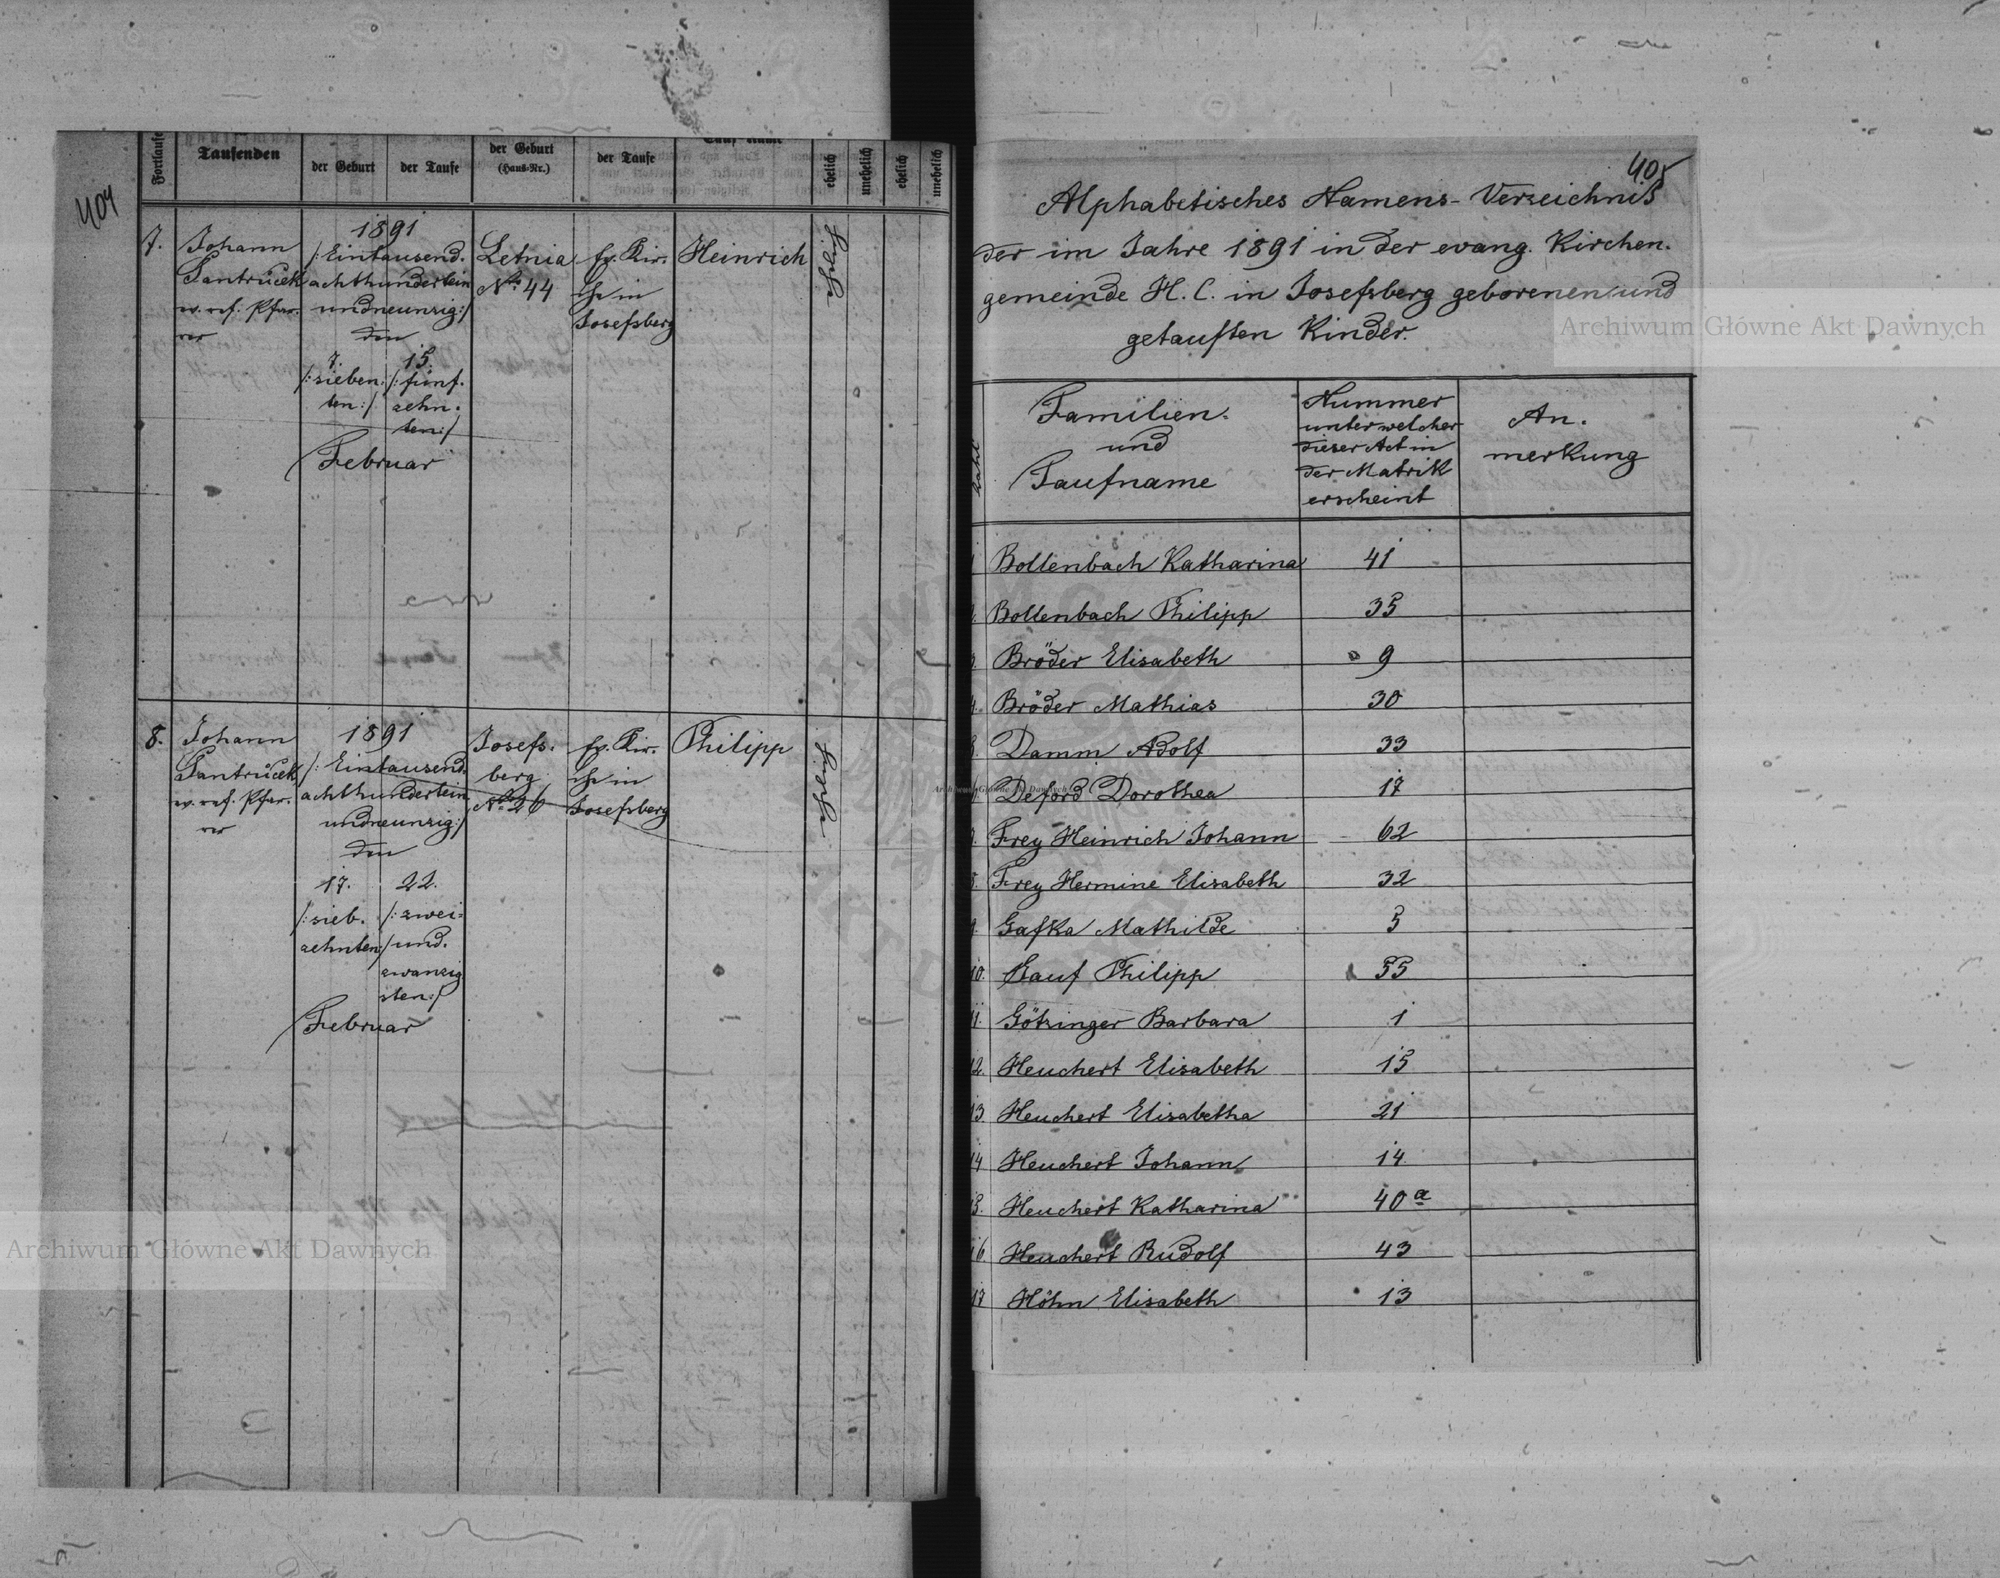 404
Fortlauf
Taufenden
der Geburt
der Taufe
der Geburt
(Haus-Nr.)
der Taufe
ehelich
unehelich
ehelich
unehelich
7.
Johann
w. ref. Pfar-
rer
1891
/: Eintausend.
achthundertein
undneunzig :/
den
7.
/: sieben.
ten :/
15.
/: fünf.
zehn.
ten :/
Februar
Letnia
No 44
ev. Kir.
che in
Josefsberg
Heinrich
ehelich
8.
Johann
w. ref. Pfar.
rer
1891
/: Eintausend.
achthundertein
undneunzig :/
den
17.
/: sieb.
zehnten :/
22.
/: zwei-
und.
zwanzig
sten :/
Februar
Josefs.
berg
No 26
ev. Kir.
che in
Josefsberg
Philipp
ehelich
405
Alphabetisches Namens-Verzeichniß
der im Jahre 1891 in der evang. Kirchen.
gemeinde H. C. in Josefsberg geborenen und
getauften Kinder.
Zahl
Familien-
und
Taufname
Nummer
unter welcher
dieser Act in
der Matrik
erscheint
An.
merkung
1 Bollenbach Katharina 41
2. Bollenbach Philipp 35
3. Bröder Elisabeth 9
4. Bröder Mathias 30
5. Damm Adolf 33
6. Deford Dorothea 17
7. Frey Heinrich Johann 62
8. Frey Hermine Elisabeth 32
9. Gafka Mathilde 5
10. Gauf Philipp 55
11. Götzinger Barbara 1
12. Heuchert Elisabeth 15
13. Heuchert Elisabetha 21
14 Heuchert Johann 14
15. Heuchert Katharina 40 a
16 Heuchert Rudolf 43
17 Höhn Elisabeth 13
Archiwum Główne Akt Dawnych
Archiwum Główne Akt Dawnych
Archiwum Główne Akt Dawnych